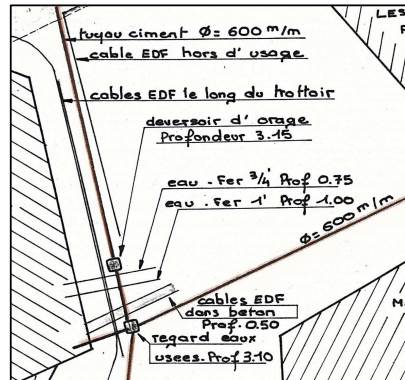 LES
tuyau ciment Ø= 600 m/m
cable EDF hors d'usage
cables EDF le long du trottoir
deversoir d'orage
Profondeur 3.15
eau . Fer 3/4' Prof 0.75
eau . Fer 1' Prof 1.00
Ø= 600 m/m
cables EDF
dans beton
Prof. 0.50
regard eaux
usees. Prof 3.10